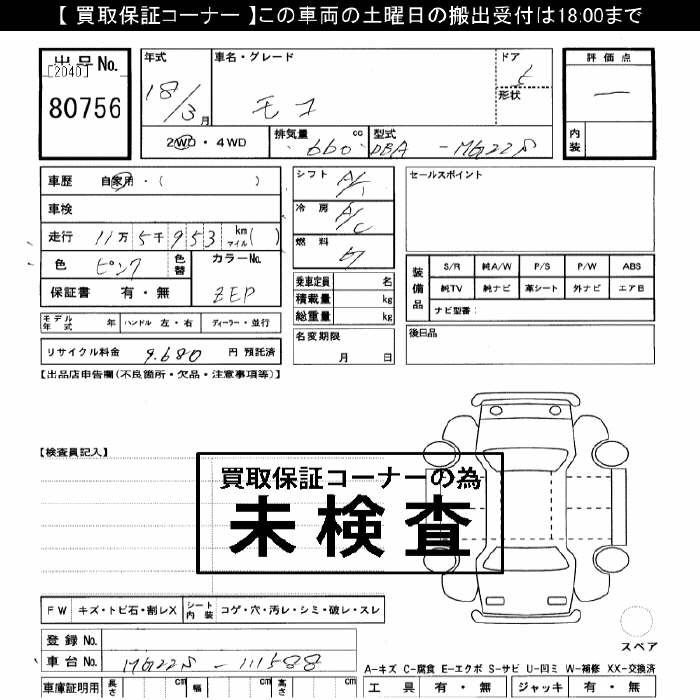 【 買取保証コーナー 】この車両の土曜日の搬出受付は18:00まで
出品No.
[2040]
80756
年式
18/3月
車名・グレード
モコ
ドア
形状
評価点
内装
2WD・4WD
排気量 660 cc
型式 DBA - MG22S
車歴 自家用・( )
車検
走行 11万5千953 km マイル( )
色 ピンク 色替
カラーNo. ZEP
保証書 有・無
モデル年式 年 ハンドル 左・右 ディーラー・並行
リサイクル料金 9.680 円 預託済
シフト A/T
冷房 A/C
燃料
乗車定員 名
積載量 kg
総重量 kg
名変期限
月 日
セールスポイント
装備品
S/R 純A/W P/S P/W ABS
純TV 純ナビ 革シート 外ナビ エアB
ナビ型番:
後日品
【出品店申告欄(不良箇所・欠品・注意事項等)】
【検査員記入】
買取保証コーナーの為
未検査
FW キズ・トビ石・割レX シート内装 コゲ・穴・汚レ・シミ・破レ・スレ
登録No.
車台No. MG22S - 111588
車庫証明用 長さ cm 幅 cm 高さ cm
スペア
A-キズ C-腐食 E-エクボ S-サビ U-凹ミ W-補修 XX-交換済
工具 有・無 ジャッキ 有・無